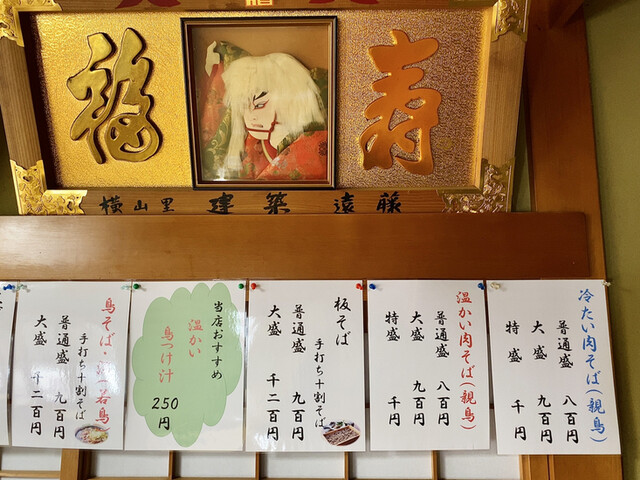 福
寿
横山里 建築 遠藤
冷たい肉そば(親鳥)
普通盛 八百円
大盛 九百円
特盛 千円
温かい肉そば(親鳥)
普通盛 八百円
大盛 九百円
特盛 千円
板そば
手打ち十割そば
普通盛 九百円
大盛 千二百円
当店おすすめ
温かい
鳥つけ汁
250
円
鳥そば・
若鳥)
手打ち十割そば
普通盛 九百円
大盛 千二百円